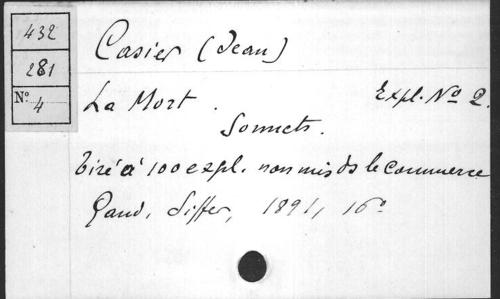 432
281
No 4
Casier (Jean)
La Mort. Expl. No 2.
Sonnets.
Tiré à 100 expl. non mis ds le commerce
Gand, Siffer, 1891, 16o